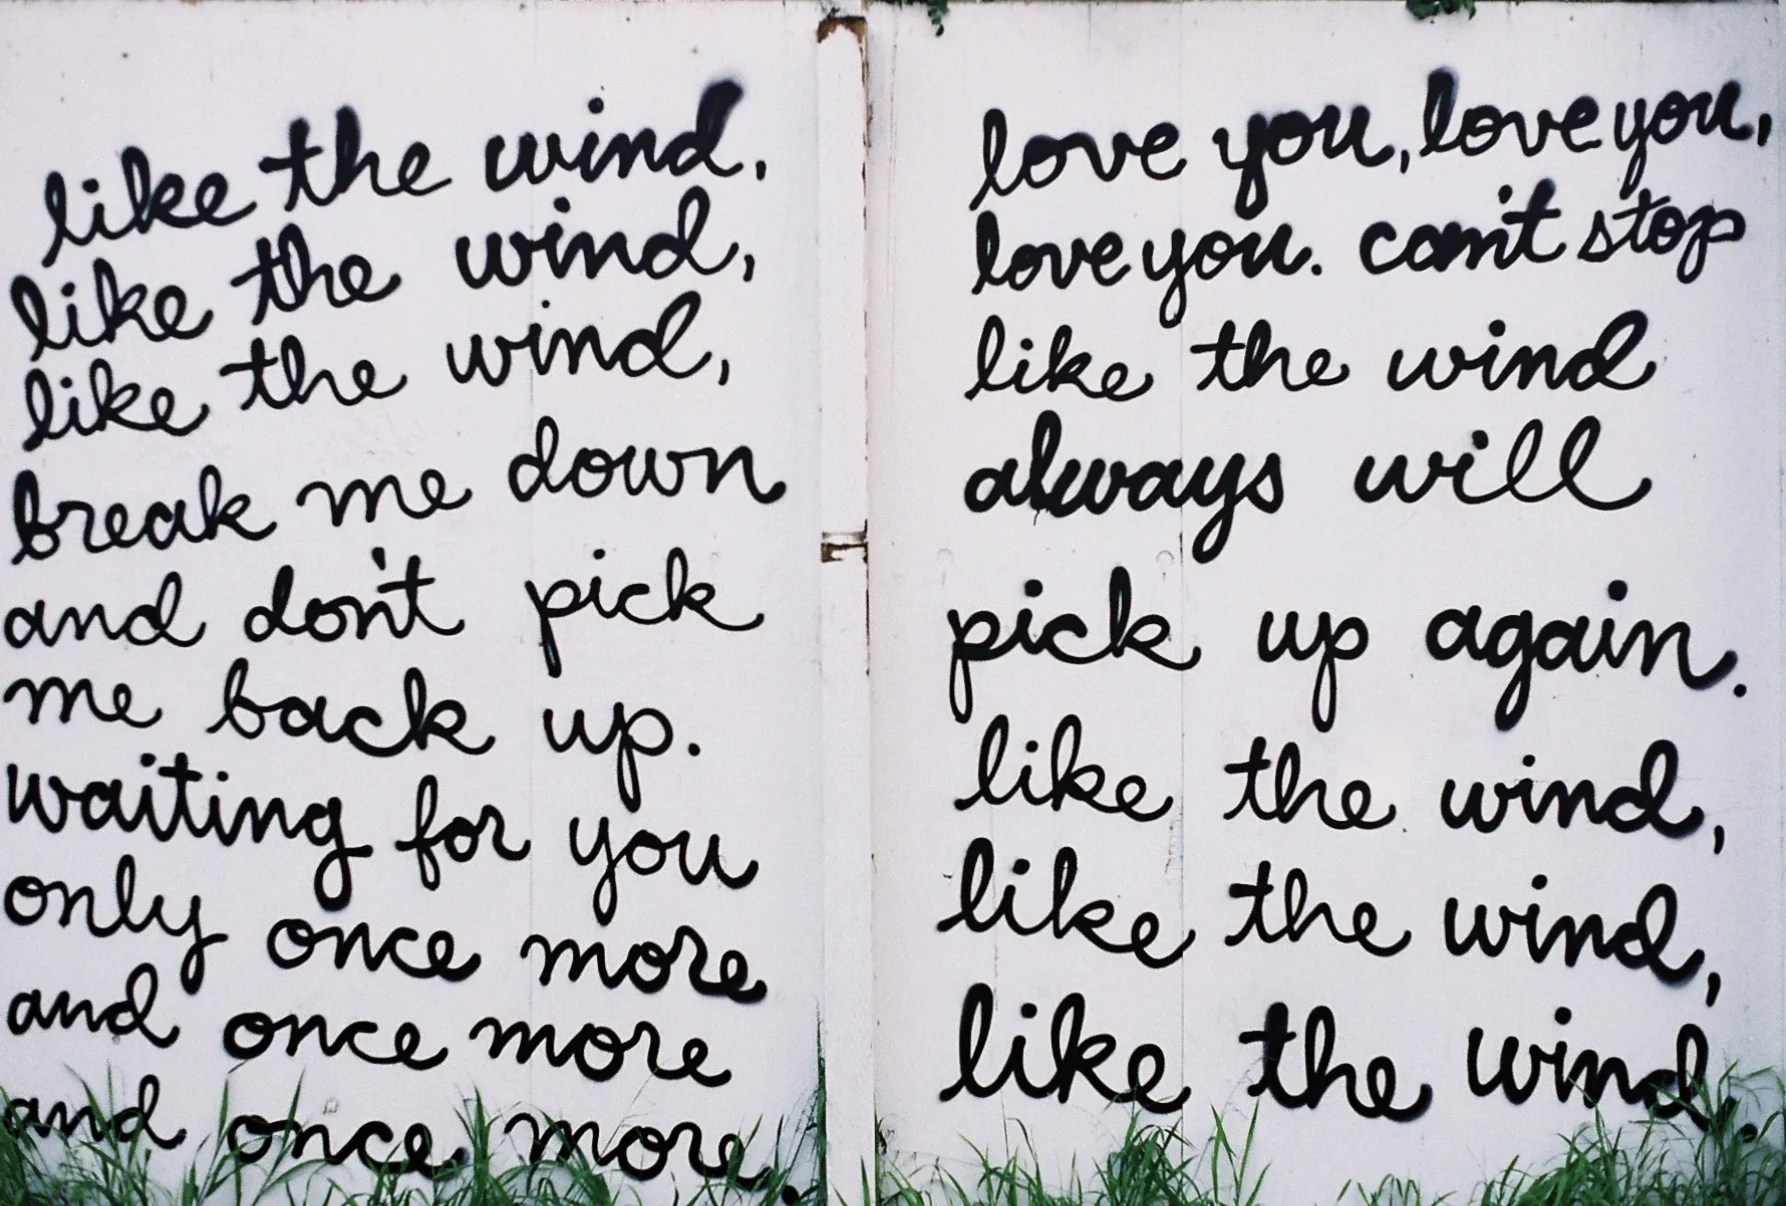 like the wind,
like the wind,
like the wind,
break me down
and don't pick
me back up.
waiting for you
only once more
and once more
and once more.
love you, love you,
love you. can't stop
like the wind
always will
pick up again.
like the wind,
like the wind,
like the wind.